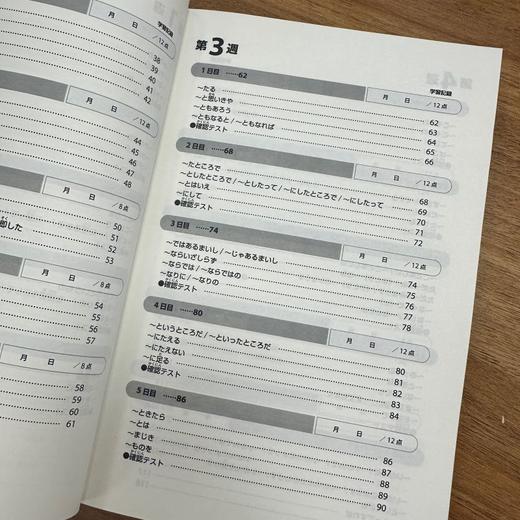 月 日 /12点
38
39
40
41
42
月 日 /12点
44
45
46
47
48
月 日 /8点
50
即した
51
52
53
月 日 /8点
54
55
56
57
月 日 /8点
58
59
60
61
第3週
学習記録
1日目 ……62
月 日 /12点
~たる 62
~と思いきや 63
~ともあろう 64
~ともなると/~ともなれば 65
●確認テスト 66
2日目 ……68
月 日 /12点
~たところで 68
~としたところで/~としたって/~にしたところで/~にしたって 69
~とはいえ 70
~にして 71
●確認テスト 72
3日目 ……74
月 日 /12点
~ではあるまいし/~じゃあるまいし 74
~ならいざしらず 75
~ならでは/~ならではの 76
~なりに/~なりの 77
●確認テスト 78
4日目 ……80
月 日 /12点
~というところだ/~といったところだ 80
~にたえる 81
~にたえない 82
~に足る 83
●確認テスト 84
5日目 ……86
月 日 /12点
~ときたら 86
~とは 87
~まじき 88
~ものを 89
●確認テスト 90